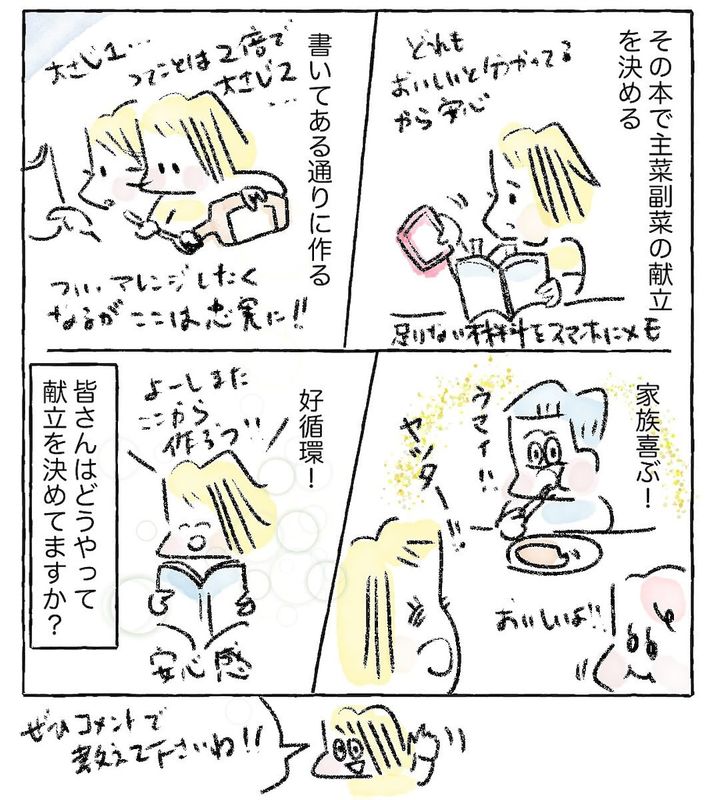 その本で主菜副菜の献立
を決める
どれも
おいしいと分かってる
から安心
足りない材料をスマホにメモ
書いてある通りに作る
大さじ1…
ってことは2倍で
大さじ2
…
つい、アレンジしたく
なるがここは忠実に!!
家族喜ぶ！
ウマイ!!
ヤッター!!
おいしいよ!!
好循環！
よーしまた
ここから
作ろっ
安心感
皆さんはどうやって
献立を決めてますか？
ぜひコメントで
教えて下さいね!!